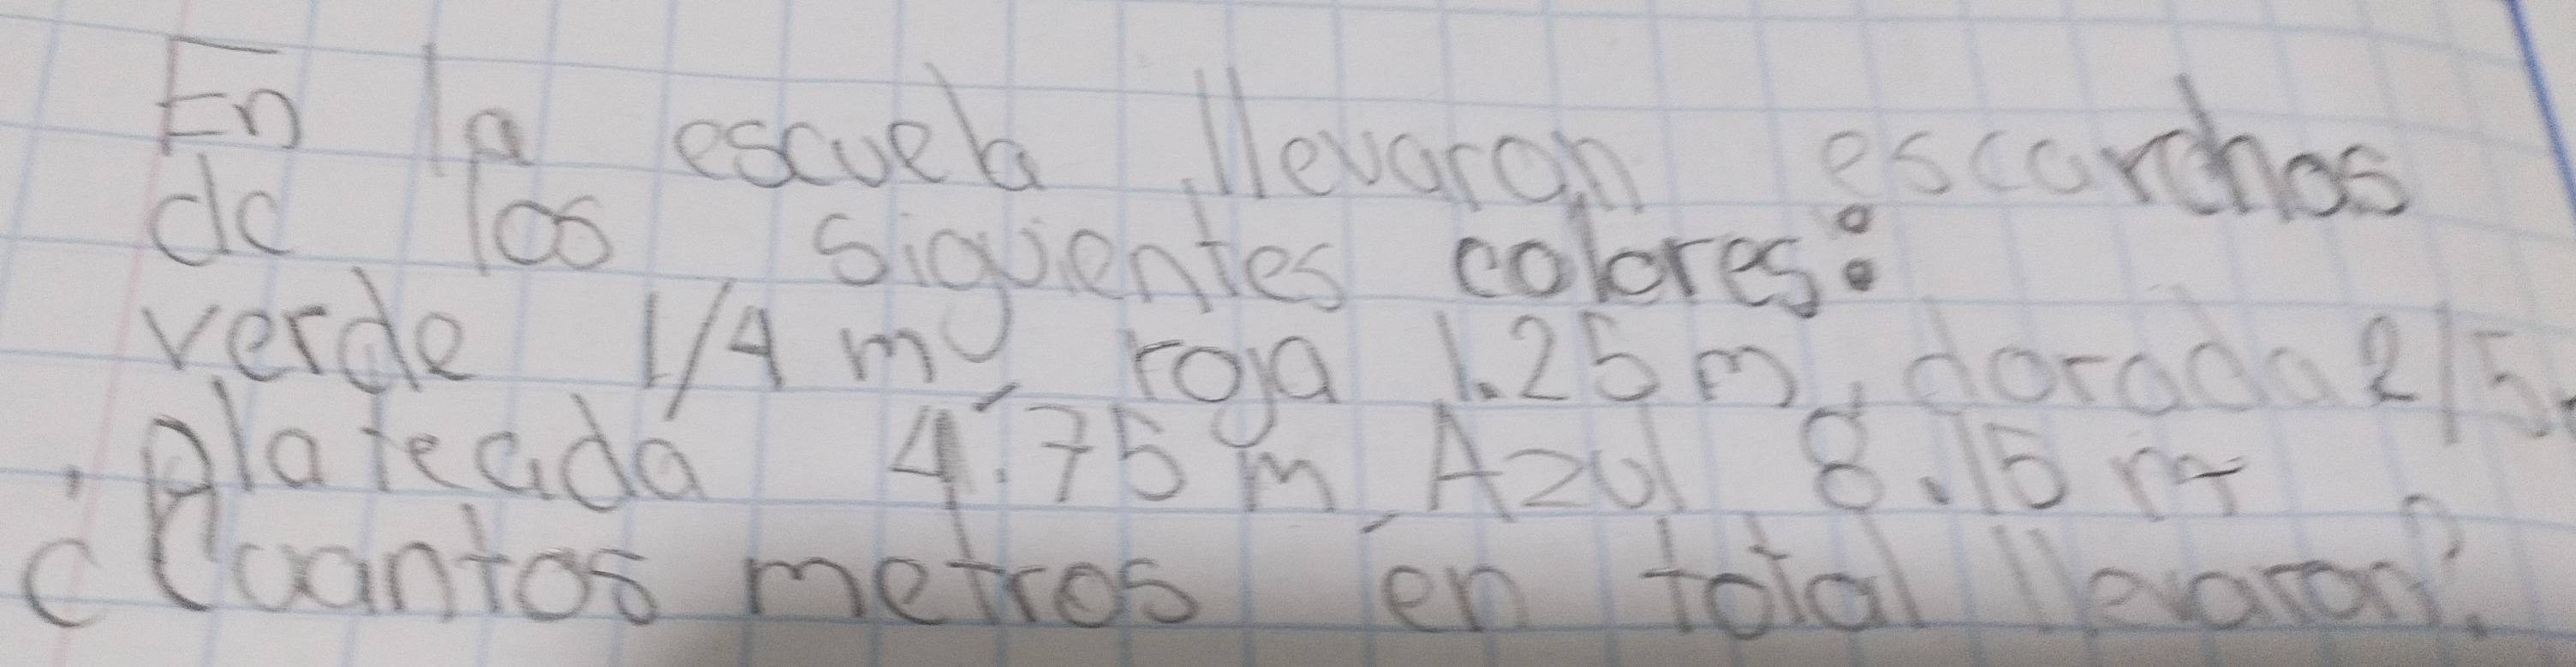 En la escuela llevaron escarchas
de los siguientes colores:
verde 1/4 m, roja 1.25 m, dorada 2/5,
plateada 4.75 m, Azul 8.15 m
¿Cuantos metros en total llevaron?